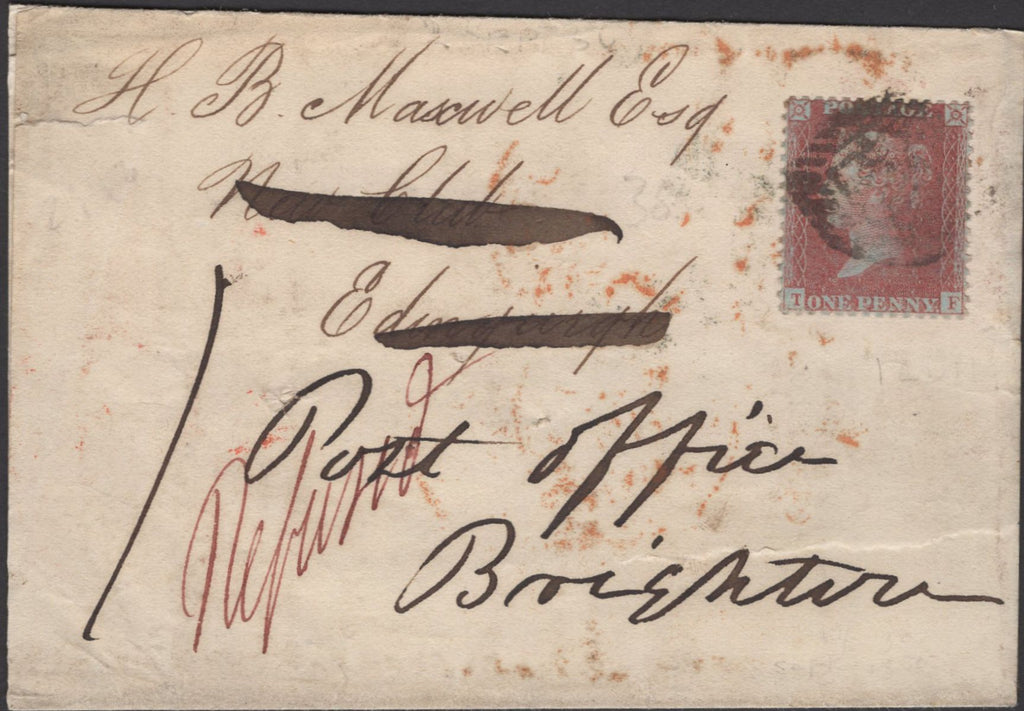 H. B. Maxwell Esq
New Club
Edinburgh
Post Office
Brighton
Refused
POSTAGE
T ONE PENNY. F